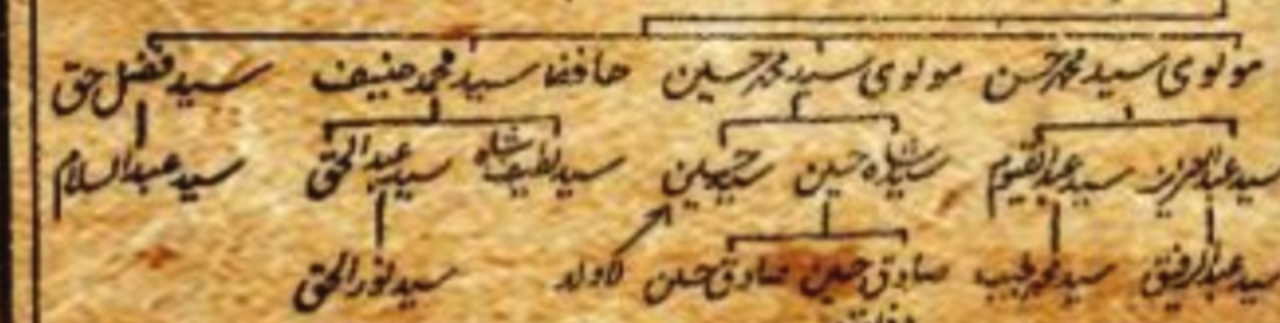 مولوی سید محمد حسن مولوی سید محمد حسین حافظ سید محمد حنیف سید فضل حق
سید عبدالعزیز سید عبدالقیوم سید شاہ حسین سید لطیف شاہ سید عبدالحق سید عبدالسلام
سید عبدالرفیق سید محمد طیب صادق حسین صادق حسن لاولد سید نورالحق